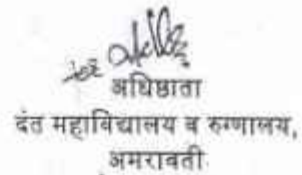 अधिष्ठाता
दंत महाविद्यालय व रुग्णालय,
अमरावती